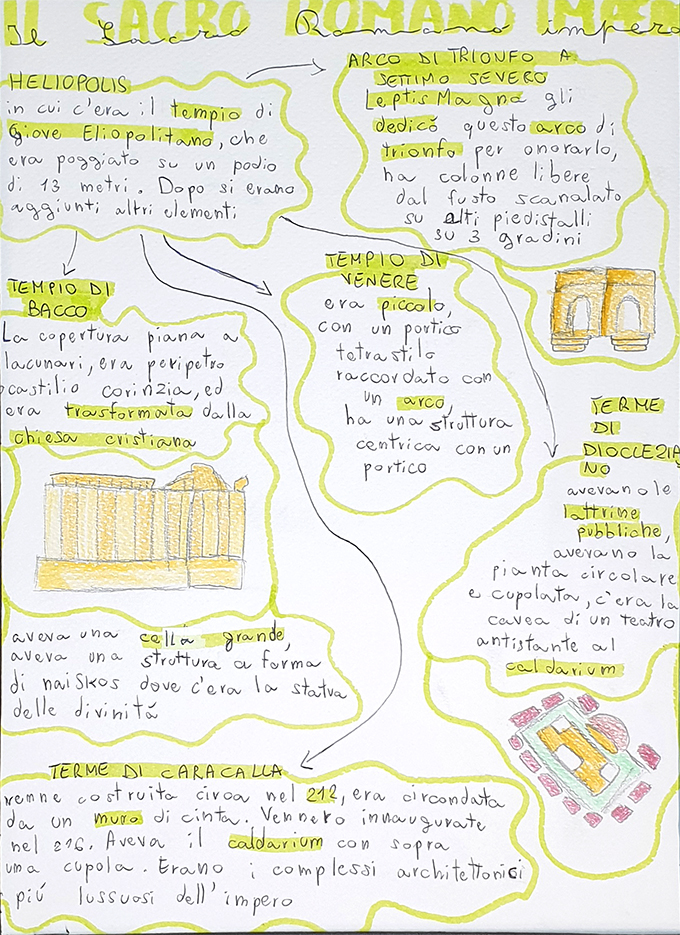 IL SACRO ROMANO IMPERO
Il Sacro Romano impero
HELIOPOLIS
in cui c'era il tempio di
Giove Eliopolitano, che
era poggiato su un podio
di 13 metri. Dopo si erano
aggiunti altri elementi
ARCO DI TRIONFO A
SETTIMO SEVERO
Leptis Magna gli
dedicò questo arco di
trionfo per onorarlo,
ha colonne libere
dal fusto scanalato
su alti piedistalli
su 3 gradini
TEMPIO DI
BACCO
La copertura piana a
lacunari, era peripetro
castilio corinzia, ed
era trasformata dalla
chiesa cristiana
aveva una cella grande,
aveva una struttura a forma
di naiskos dove c'era la statua
delle divinitá
TEMPIO DI
VENERE
era piccolo,
con un portico
tetrastilo
raccordato con
un arco,
ha una struttura
centrica con un
portico
TERME
DI
DIOCLEZIA
NO
avevano le
lattrine
pubbliche,
avevano la
pianta circolare
e cupolata, c'era la
cavea di un teatro
antistante al
caldarium
TERME DI CARACALLA
venne costruita circa nel 212, era circondata
da un muro di cinta. Vennero innaugurate
nel 216. Aveva il caldarium con sopra
una cupola. Erano i complessi architettonici
piú lussuosi dell'impero